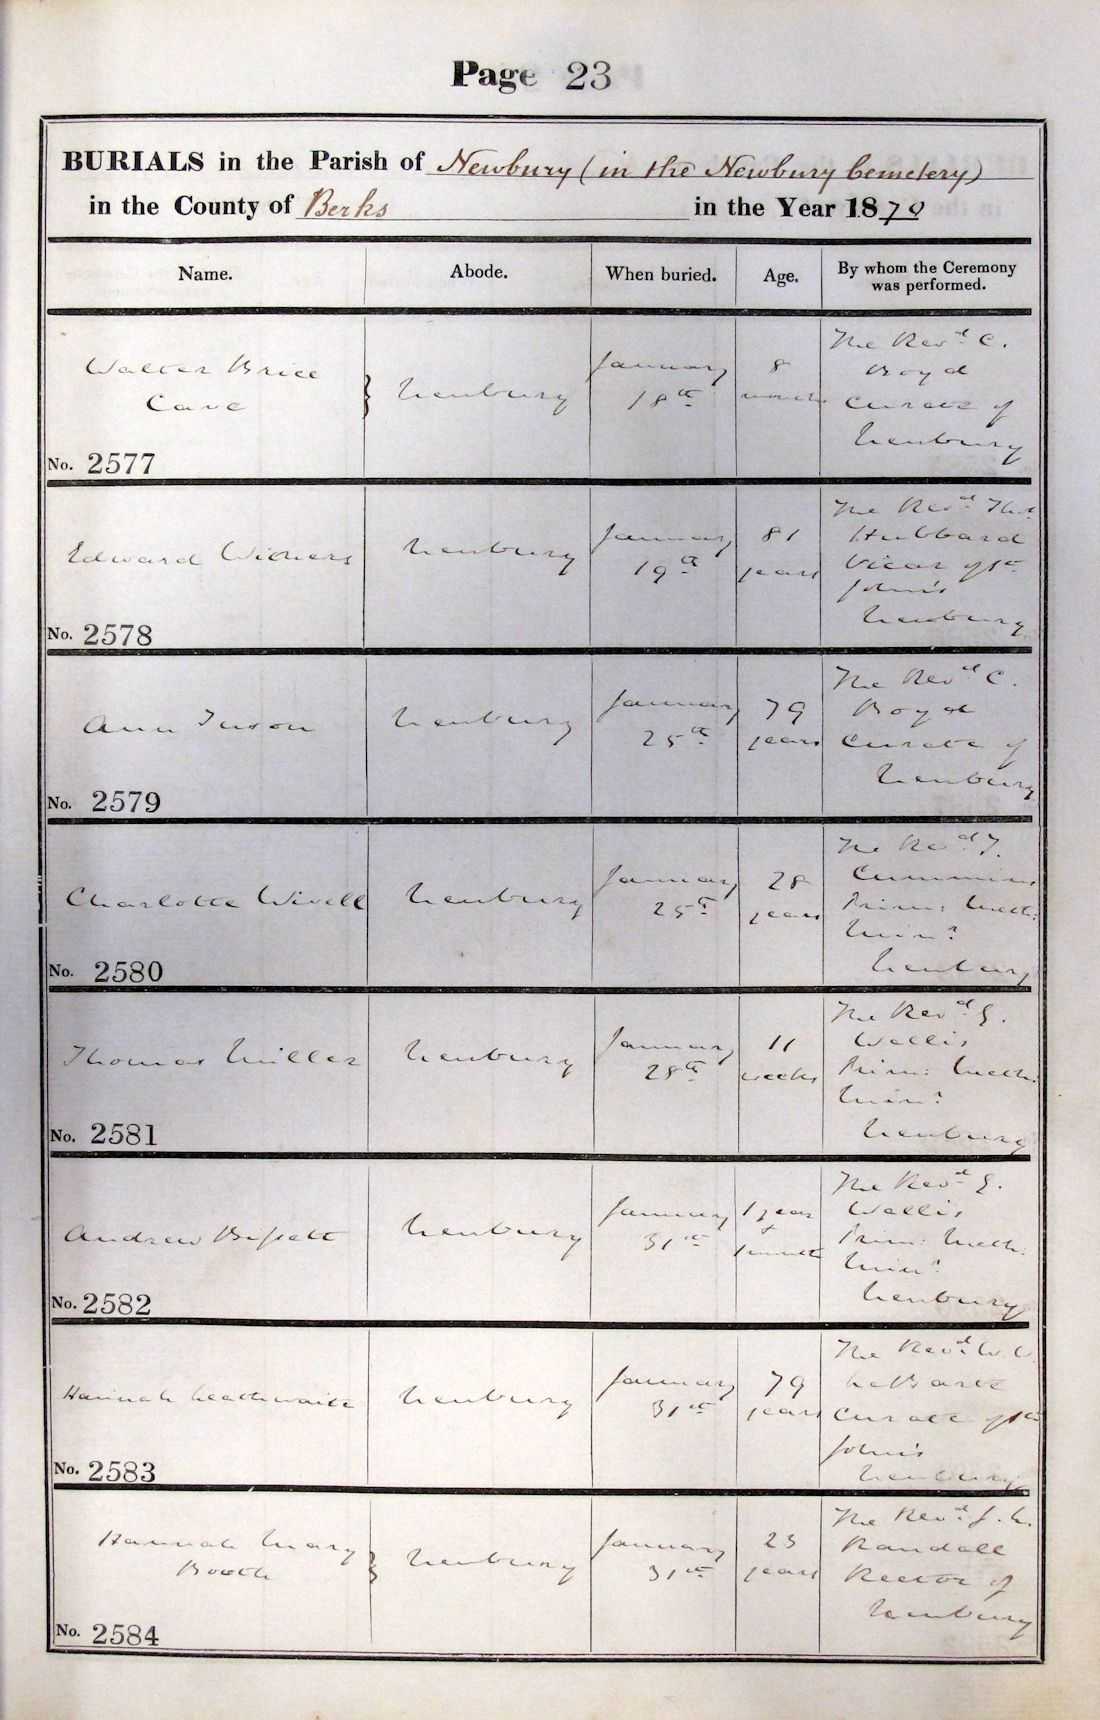 Page 23
BURIALS in the Parish of Newbury (in the Newbury Cemetery)
in the County of Berks in the Year 1870
Name. Abode. When buried. Age. By whom the Ceremony was performed.
Walter Brice
Cave
Newbury
January
18th
8
months
The Revd. C.
Boyd
Curate of
Newbury
No. 2577
Edward Withers
Newbury
January
19th
81
years
The Revd. Thos.
Hubbard
Vicar of St.
John's
Newbury
No. 2578
Ann Tuson
Newbury
January
25th
79
years
The Revd. C.
Boyd
Curate of
Newbury
No. 2579
Charlotte Wivell
Newbury
January
25th
28
years
The Revd. T.
Cummins
Prim: Meth:
Minr.
Newbury
No. 2580
Thomas Miller
Newbury
January
28th
11
weeks
The Revd. G.
Wellis
Prim: Meth:
Minr.
Newbury
No. 2581
Andrew Bissett
Newbury
January
31st
1 year
+
1 month
The Revd. G.
Wellis
Prim: Meth:
Minr.
Newbury
No. 2582
Hannah Leathwaite
Newbury
January
31st
79
years
The Revd. W. W.
Curate of St.
John's
Newbury
No. 2583
Hannah Mary
Booth
Newbury
January
31st
23
years
The Revd. J. L.
Randall
Rector of
Newbury
No. 2584